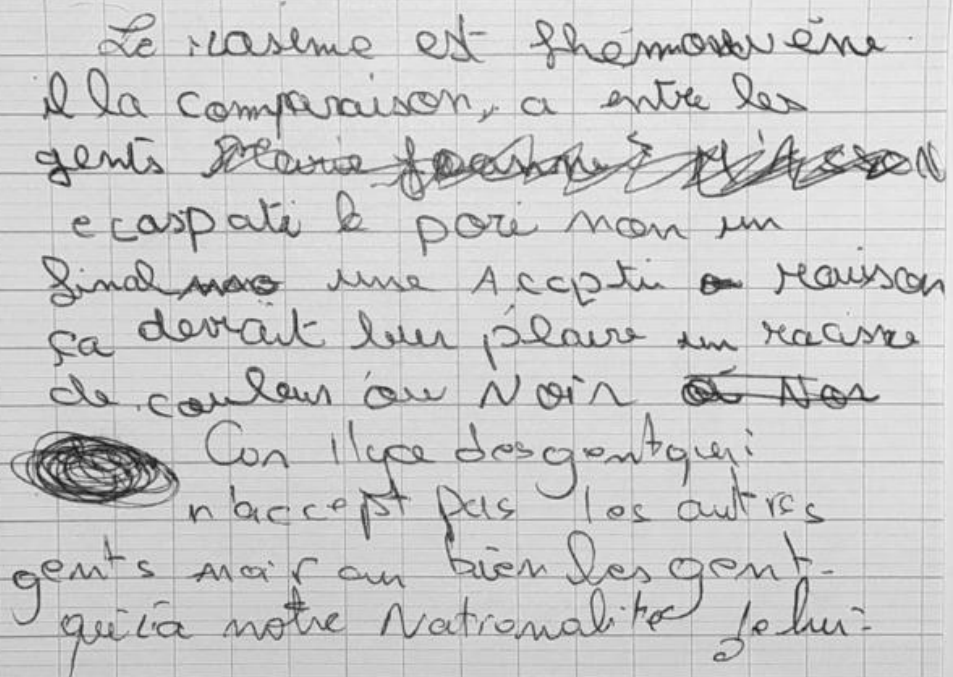 Le rasisme est
Il la comparaison, a entre les
gents
e caspati le pori non un
final une Accpti raison
ça devrait leur plaire un racisme
de couleur ou Noir
Con Ilya des gent qui
n'accept pas les autres
gents noir ou bien les gent
qui ia notre Nationalite je lui